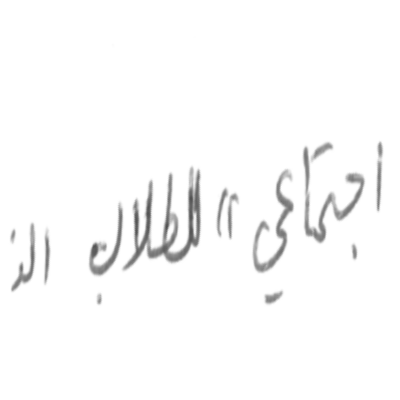 اجتماعي " للطلاب الذ